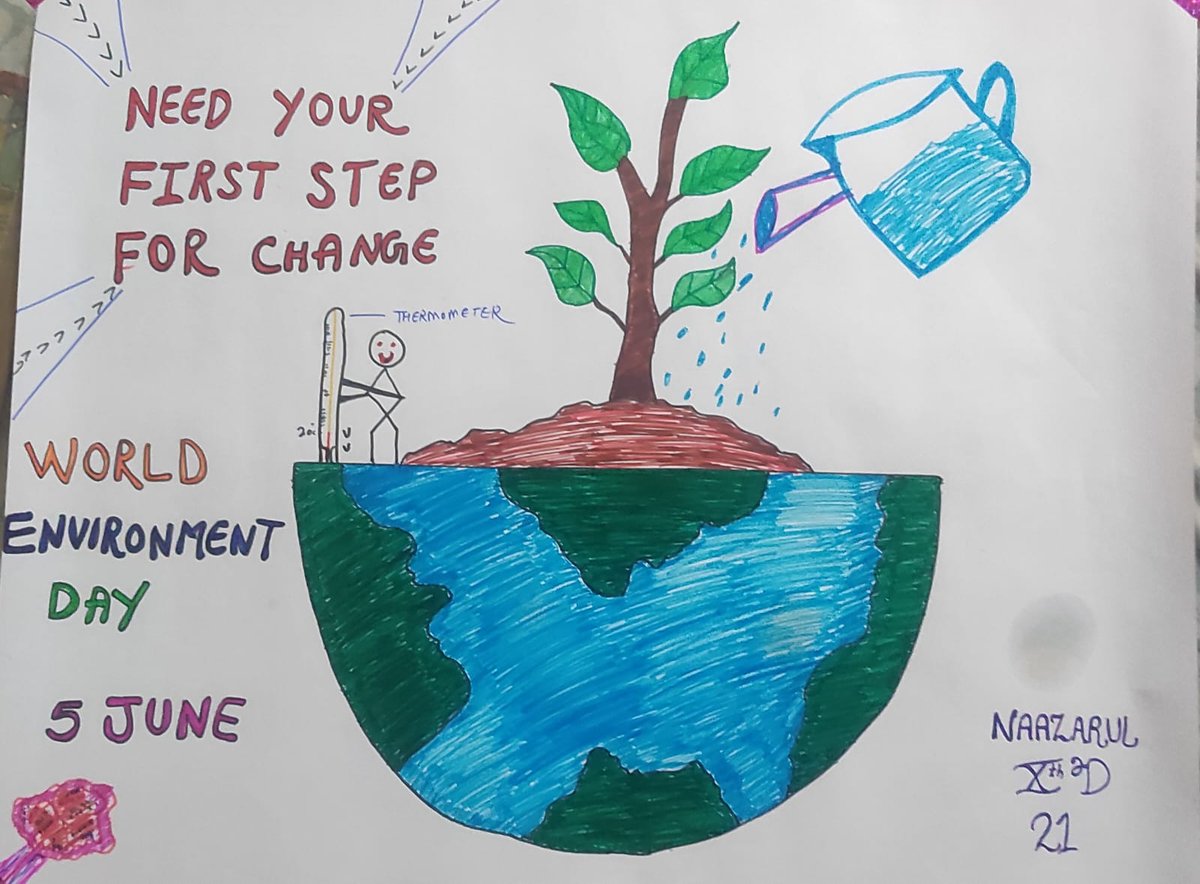 NEED YOUR
FIRST STEP
FOR CHANGE
THERMOMETER
WORLD
ENVIRONMENT
DAY
5 JUNE
NAAZARUL
Xth D
21